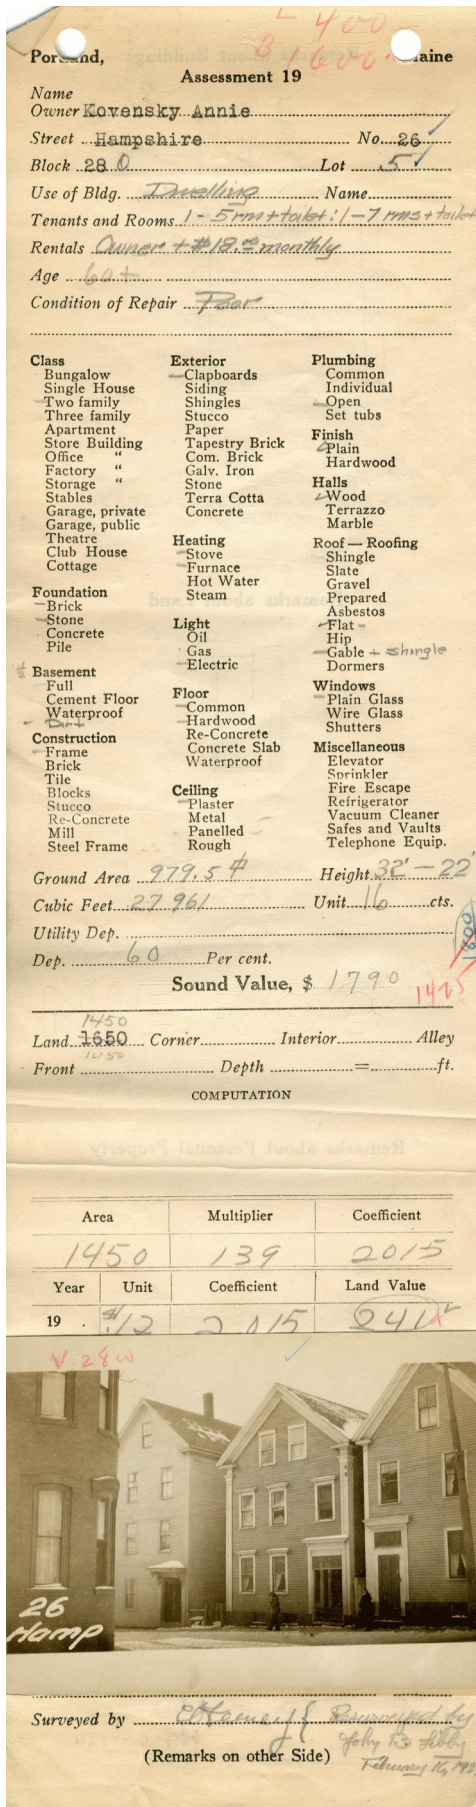 L 400
B 1600.
Portland, Maine
Assessment 19
Name
Owner Kovensky Annie
Street Hampshire No. 26
Block 28 0 Lot 5
Use of Bldg. Dwelling Name
Tenants and Rooms 1 - 5 rm + toilet: 1 - 7 rms + toilet
Rentals Owner + $18.00 monthly
Age 60+
Condition of Repair Poor
Class
Bungalow
Single House
Two family
Three family
Apartment
Store Building
Office "
Factory "
Storage "
Stables
Garage, private
Garage, public
Theatre
Club House
Cottage
Foundation
Brick
Stone
Concrete
Pile
Basement
Full
Cement Floor
Waterproof
Dirt
Construction
Frame
Brick
Tile
Blocks
Stucco
Re-Concrete
Mill
Steel Frame
Exterior
Clapboards
Siding
Shingles
Stucco
Paper
Tapestry Brick
Com. Brick
Galv. Iron
Stone
Terra Cotta
Concrete
Heating
Stove
Furnace
Hot Water
Steam
Light
Oil
Gas
Electric
Floor
Common
Hardwood
Re-Concrete
Concrete Slab
Waterproof
Ceiling
Plaster
Metal
Panelled
Rough
Plumbing
Common
Individual
Open
Set tubs
Finish
Plain
Hardwood
Halls
Wood
Terrazzo
Marble
Roof — Roofing
Shingle
Slate
Gravel
Prepared
Asbestos
Flat -
Hip
Gable + shingle
Dormers
Windows
Plain Glass
Wire Glass
Shutters
Miscellaneous
Elevator
Sprinkler
Fire Escape
Refrigerator
Vacuum Cleaner
Safes and Vaults
Telephone Equip.
Ground Area 979.5 # Height 32' - 22'
Cubic Feet 27961 Unit 16 cts.
Utility Dep.
Dep. 60 Per cent.
1800
Sound Value, $ 1790
1425
1450
Land 1650 Corner Interior Alley
1450
Front Depth = ft.
COMPUTATION
Area Multiplier Coefficient
1450 139 2015
Year Unit Coefficient Land Value
19 . $.12 2015 241
V-280
26
Hamp
Surveyed by Resurveyed by
John B Libby
February 16, 192
(Remarks on other Side)